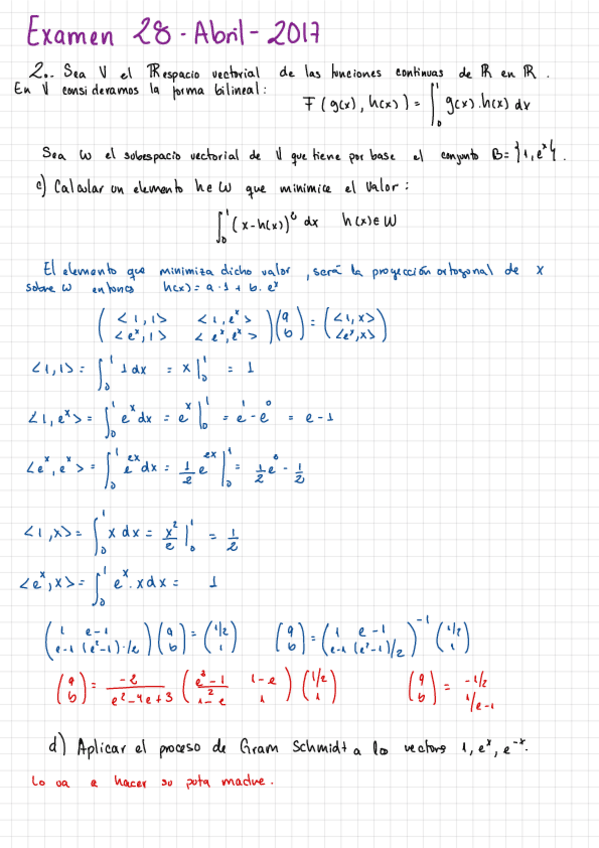 Examen 28-Abril-2017
2.. Sea V el ℝ espacio vectorial de las funciones continuas de ℝ en ℝ.
En V consideramos la forma bilineal: F(g(x), h(x)) = ∫₀¹ g(x).h(x) dx
Sea W el subespacio vectorial de V que tiene por base el conjunto B={1,eˣ}.
c) Calcular un elemento h∈W que minimice el valor:
∫₀¹ (x-h(x))⁶ dx h(x)∈W
El elemento que minimiza dicho valor, será la proyección ortogonal de x
sobre W entonces h(x) = a·1 + b·eˣ
(<1,1> <1,eˣ>; <eˣ,1> <eˣ,eˣ>)(a; b) = (<1,x>; <eˣ,x>)
<1,1> = ∫₀¹ 1 dx = x|₀¹ = 1
<1,eˣ> = ∫₀¹ eˣ dx = eˣ|₀¹ = e¹-e⁰ = e-1
<eˣ,eˣ> = ∫₀¹ e²ˣ dx = 1/2 e²ˣ|₀¹ = 1/2 e⁰ - 1/2
<1,x> = ∫₀¹ x dx = x²/2|₀¹ = 1/2
<eˣ,x> = ∫₀¹ eˣ.x dx = 1
(1 e-1; e-1 (e²-1)·1/2)(a; b) = (1/2; 1) (a; b) = (1 e-1; e-1 (e²-1)/2)⁻¹ (1/2; 1)
(a; b) = -2/(e²-4e+3) ((e²-1)/2 1-e; 1-e 1)(1/2; 1) (a; b) = -1/2; 1/e-1
d) Aplicar el proceso de Gram Schmidt a los vectores 1, eˣ, e⁻ˣ.
Lo va a hacer su puta madre.